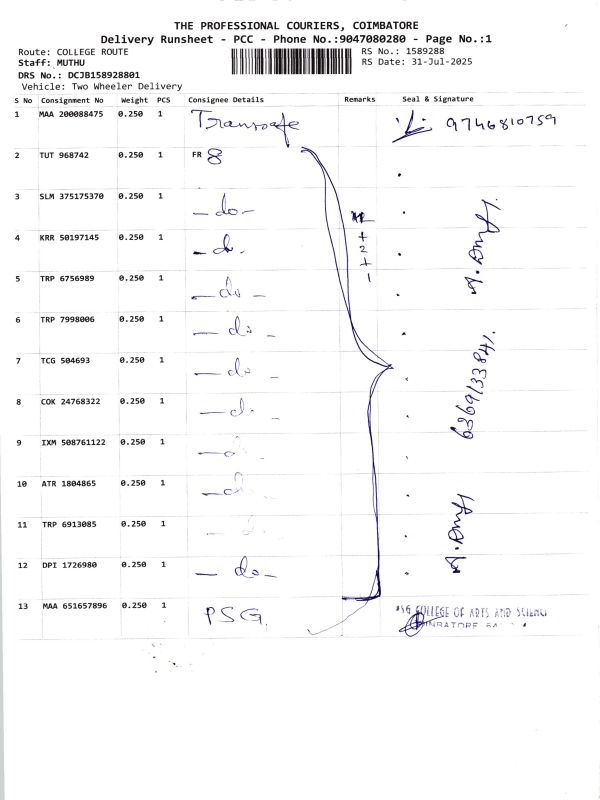 THE PROFESSIONAL COURIERS, COIMBATORE
Delivery Runsheet - PCC - Phone No.:9047080280 - Page No.:1
Route: COLLEGE ROUTE RS No.: 1589288
Staff: MUTHU RS Date: 31-Jul-2025
DRS No.: DCJB158928801
Vehicle: Two Wheeler Delivery
S No Consignment No Weight PCS Consignee Details Remarks Seal & Signature
1 MAA 200088475 0.250 1 Transafe 9746810759
2 TUT 968742 0.250 1 FR 8
3 SLM 375175370 0.250 1 -do-
4 KRR 50197145 0.250 1 -do-
5 TRP 6756989 0.250 1 -do-
6 TRP 7998006 0.250 1 -do-
7 TCG 504693 0.250 1 -do-
8 COK 24768322 0.250 1 -do-
9 IXM 508761122 0.250 1 -do-
10 ATR 1804865 0.250 1 -do-
11 TRP 6913085 0.250 1 -do-
12 DPI 1726980 0.250 1 -do-
13 MAA 651657896 0.250 1 PSG
COLLEGE OF ARTS AND SCIENCE